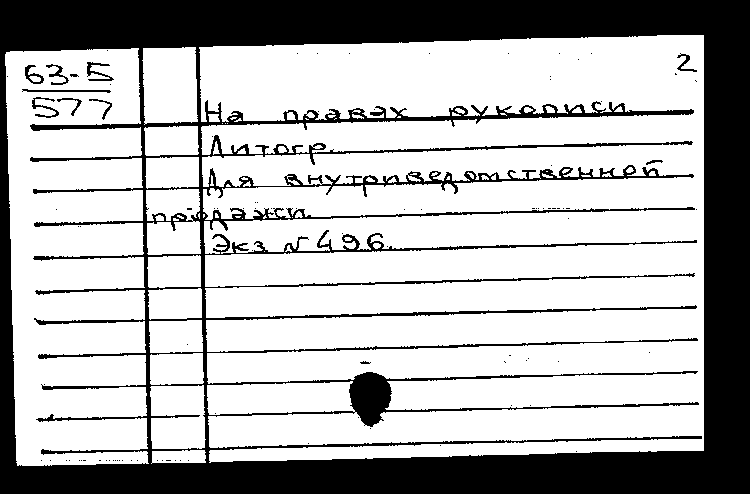 2
63-5
577
На правах рукописи.
Литогр.
Для внутриведомственной
продажи.
Экз № 496.